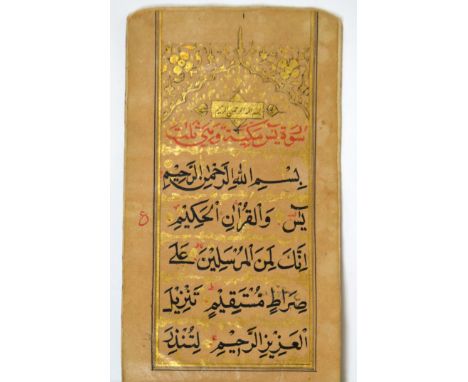 بسم الله الرحمن الرحيم
سورة يس مكية وهي ثلث
بِسْمِ اللهِ الرَّحْمٰنِ الرَّحِيمِ
يٰسٓ وَالْقُرْاٰنِ الْحَكِيمِ
اِنَّكَ لَمِنَ الْمُرْسَلِينَ عَلٰى
صِرَاطٍ مُسْتَقِيمٍ تَنْزِيلَ
الْعَزِيزِ الرَّحِيمِ لِتُنْذِرَ
ع